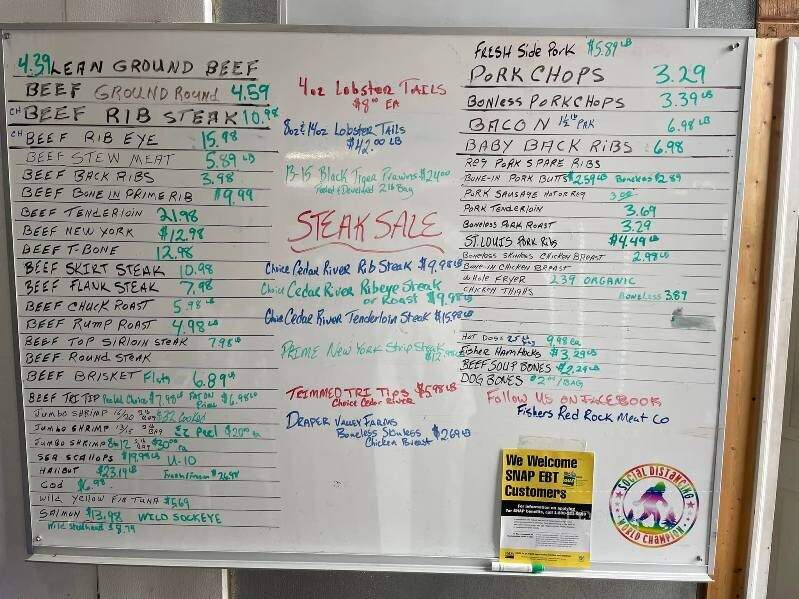 4.39 LEAN GROUND BEEF
BEEF GROUND ROUND 4.59
CH BEEF RIB STEAK 10.98
CH BEEF RIB EYE 15.98
BEEF STEW MEAT 5.89 LB
BEEF BACK RIBS 3.98
BEEF BONE IN PRIME RIB $9.99
BEEF TENDERLOIN 21.98
BEEF NEW YORK $12.98
BEEF T-BONE 12.98
BEEF SKIRT STEAK 10.98
BEEF FLANK STEAK 7.98
BEEF CHUCK ROAST 5.98 LB
BEEF RUMP ROAST 4.98 LB
BEEF TOP SIRLOIN STEAK 7.98 LB
BEEF ROUND STEAK
BEEF BRISKET Flats 6.89 LB
BEEF TRI TIP Peeled Choice $7.98 LB FAT ON Prime $6.98 LB
JUMBO SHRIMP 16/20 2 lb BAG $32 Cooked
JUMBO SHRIMP 13/15 2 lb BAG EZ Peel $20.00 ea
JUMBO SHRIMP 8 to 12 2 lb BAG $30.00 ea
SEA SCALLOPS $19.98 LB U-10
HALIBUT $23.19 LB Fresh Frozen $26.98
COD $6.98
Wild Yellow Fin TUNA $5.69
SALMON $13.98 WILD SOCKEYE
Wild Steelhead $8.79
4oz Lobster TAILS
$8.00 EA
8oz & 14oz Lobster TAILS
$42.00 LB
13-15 Black Tiger Prawns $24.00
Peeled & Develded 2 lb Bag
STEAK SALE
Choice Cedar River Rib Steak $9.98 LB
Choice Cedar River Ribeye Steak
or Roast $9.98 LB
Choice Cedar River Tenderloin Steak $15.98 LB
PRIME New York Strip Steak
$12.98
TRIMMED TRI TIPS $5.98 LB
Choice Cedar River
DRAPER VALLEY FARMS
Boneless Skinless $2.69 LB
Chicken Breast
FRESH Side Pork $5.89 LB
PORK CHOPS 3.29
BONLESS PORKCHOPS 3.39 LB
BACON 1½ lb PAK 6.98 LB
BABY BACK RIBS 6.98
REG PORK SPARE RIBS
BONE-IN PORK BUTTS $2.59 LB Boneless $2.89
PORK SAUSAGE HOT OR REG
PORK TENDERLOIN 3.69
BONELESS PORK ROAST 3.29
ST. LOUIS PORK RIBS $4.49 LB
BONELESS SKINLESS CHICKEN BREAST 2.98 LB
BONE-IN CHICKEN BREAST
WHOLE FRYER 2.39 ORGANIC
CHICKEN THIGHS BONELESS 3.89
HOT DOGS 9.98 ea
FISHER HAM HOCKS $3.29 LB
BEEF SOUP BONES $2.29 LB
DOG BONES $2.00/BAG
FOLLOW US ON FACEBOOK
FISHERS RED ROCK MEAT CO
We Welcome
SNAP EBT
Customers
For information on applying
for SNAP benefits, call
SOCIAL DISTANCING
WORLD CHAMPION